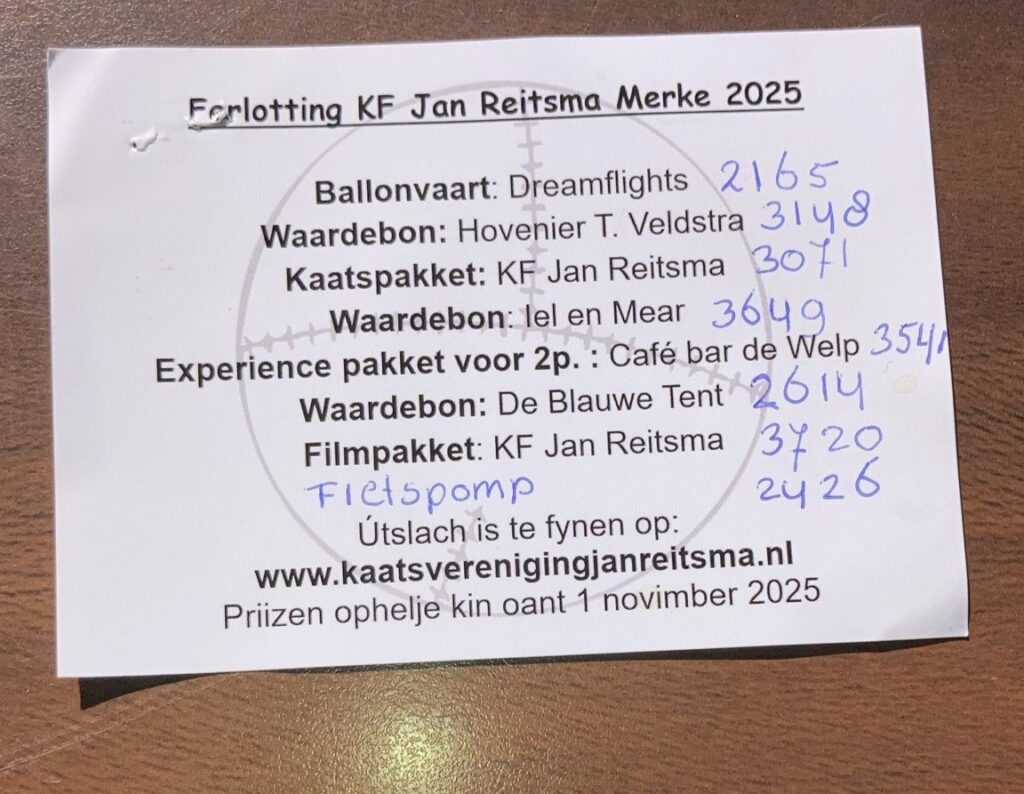 Ferlotting KF Jan Reitsma Merke 2025
Ballonvaart: Dreamflights 2165
Waardebon: Hovenier T. Veldstra 3148
Kaatspakket: KF Jan Reitsma 3071
Waardebon: Iel en Mear 3649
Experience pakket voor 2p. : Café bar de Welp
Waardebon: De Blauwe Tent 2614
Filmpakket: KF Jan Reitsma 3720
Fietspomp 2426
Útslach is te fynen op:
www.kaatsverenigingjanreitsma.nl
Priizen ophelje kin oant 1 novimber 2025